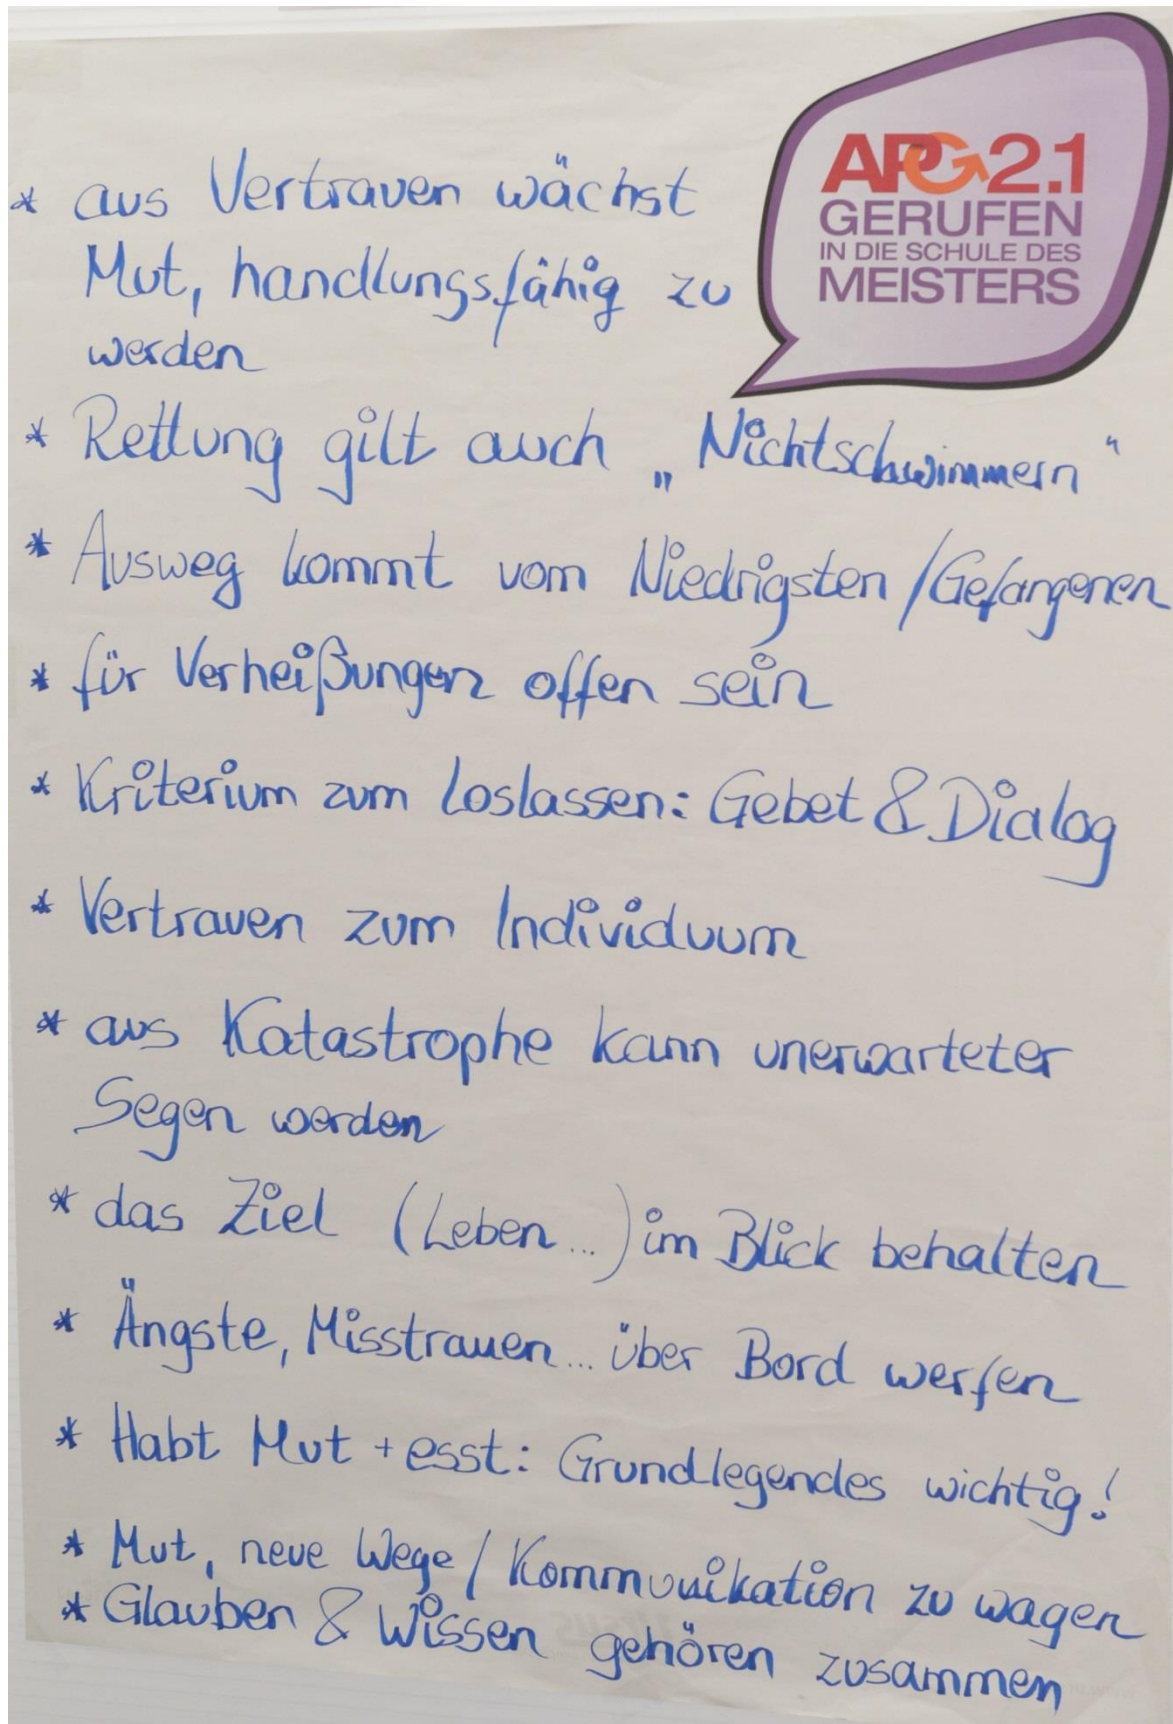 APG2.1
GERUFEN
IN DIE SCHULE DES
MEISTERS
* aus Vertrauen wächst
Mut, handlungsfähig zu
werden
* Rettung gilt auch „Nichtschwimmern“
* Ausweg kommt vom Niedrigsten/Gefangenen
* für Verheißungen offen sein
* Kriterium zum Loslassen: Gebet & Dialog
* Vertrauen zum Individuum
* aus Katastrophe kann unerwarteter
Segen werden
* das Ziel (Leben...) im Blick behalten
* Ängste, Misstrauen... über Bord werfen
* Habt Mut + esst: Grundlegendes wichtig!
* Mut, neue Wege/Kommunikation zu wagen
* Glauben & Wissen gehören zusammen